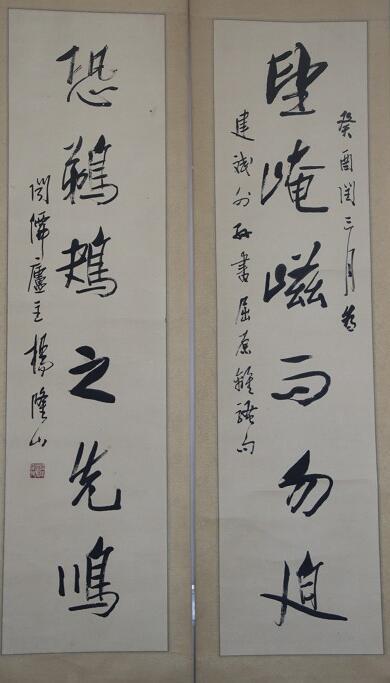 癸酉閏三月為
望崦嵫而勿迫
建外孫書屈原離騷句
恐鵜鴂之先鳴
廬主楊隆山